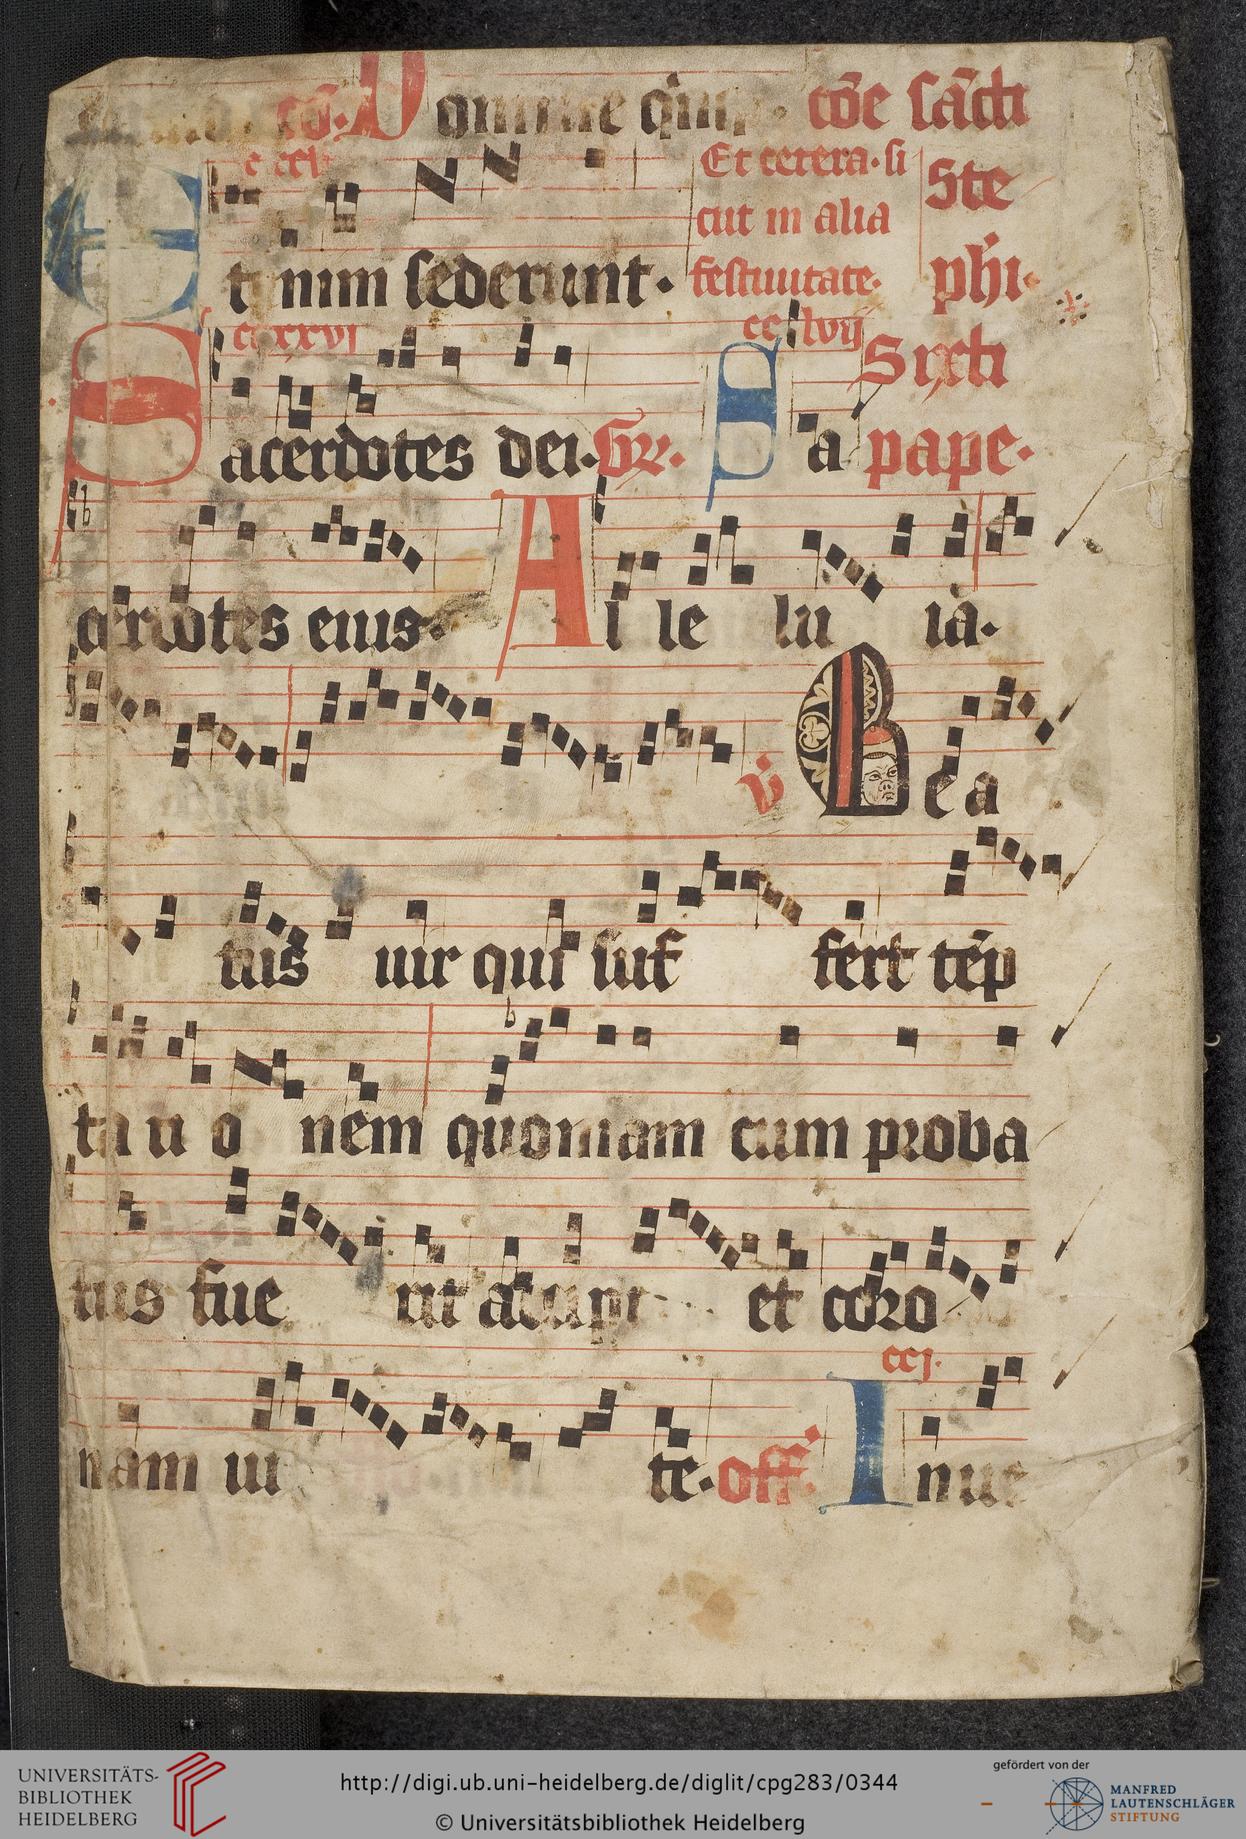 co. Domine quin. coe sacti
Et cetera. si
cut in alia
festiuitate.
Ste
phi.
Et nim sederunt.
cclxxvi
cclvij
Sixti
Sacerdotes dei. Gr. Sa pape.
cerdotes eius. Al le lu ia.
v Bea
tus uir qui suf fert tep
ta ti o nem quoniam cum proba
tus fue rit accipi et coro
ccj.
nam ui te. off. Inue
UNIVERSITÄTS-
BIBLIOTHEK
HEIDELBERG
http://digi.ub.uni-heidelberg.de/diglit/cpg283/0344
© Universitätsbibliothek Heidelberg
gefördert von der
MANFRED
LAUTENSCHLÄGER
STIFTUNG